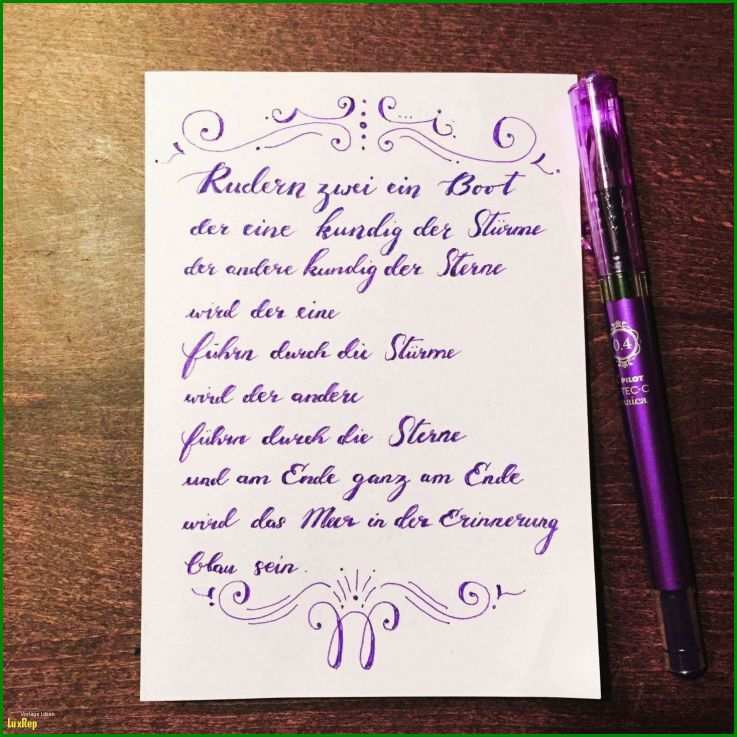 Rudern zwei ein Boot
der eine kundig der Stürme
der andere kundig der Sterne
wird der eine
führn durch die Stürme
wird der andere
führn durch die Sterne
und am Ende ganz am Ende
wird das Meer in der Erinnerung
blau sein.
0.4
PILOT
TEC-C
Vorlage Ideen
LuxRep